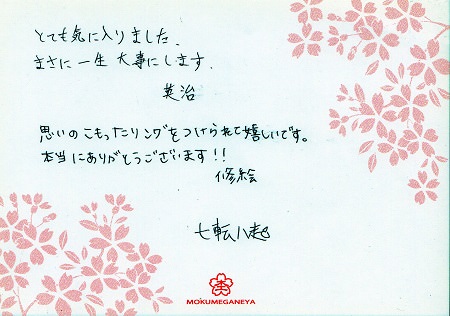 とても気に入りました.
まさに一生大事にします.
英治
思いのこもったリングをつけられて嬉しいです。
本当にありがとうございます!!
修絵
七転八起
MOKUMEGANEYA